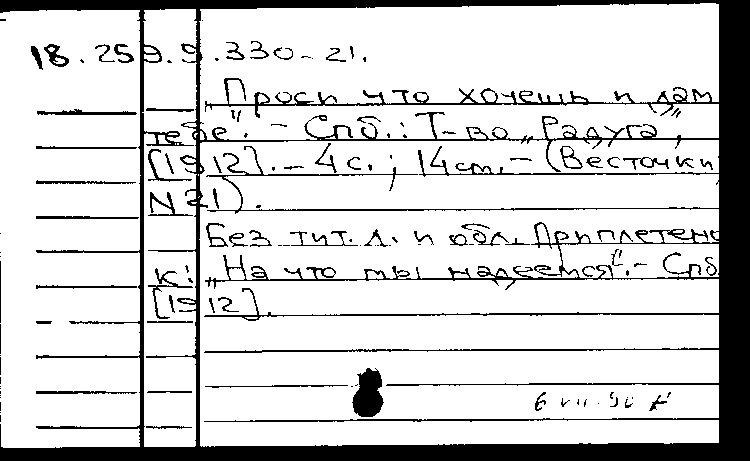 18.259.9.330-21.
„Проси что хочешь и дам
тебе". - Спб.: Т-во „Радуга",
[1912]. - 4 с. ; 14 см. - (Весточки;
N 21).
Без тит. л. и обл. Приплетено
к: „На что мы надеемся". - Спб
[1912].